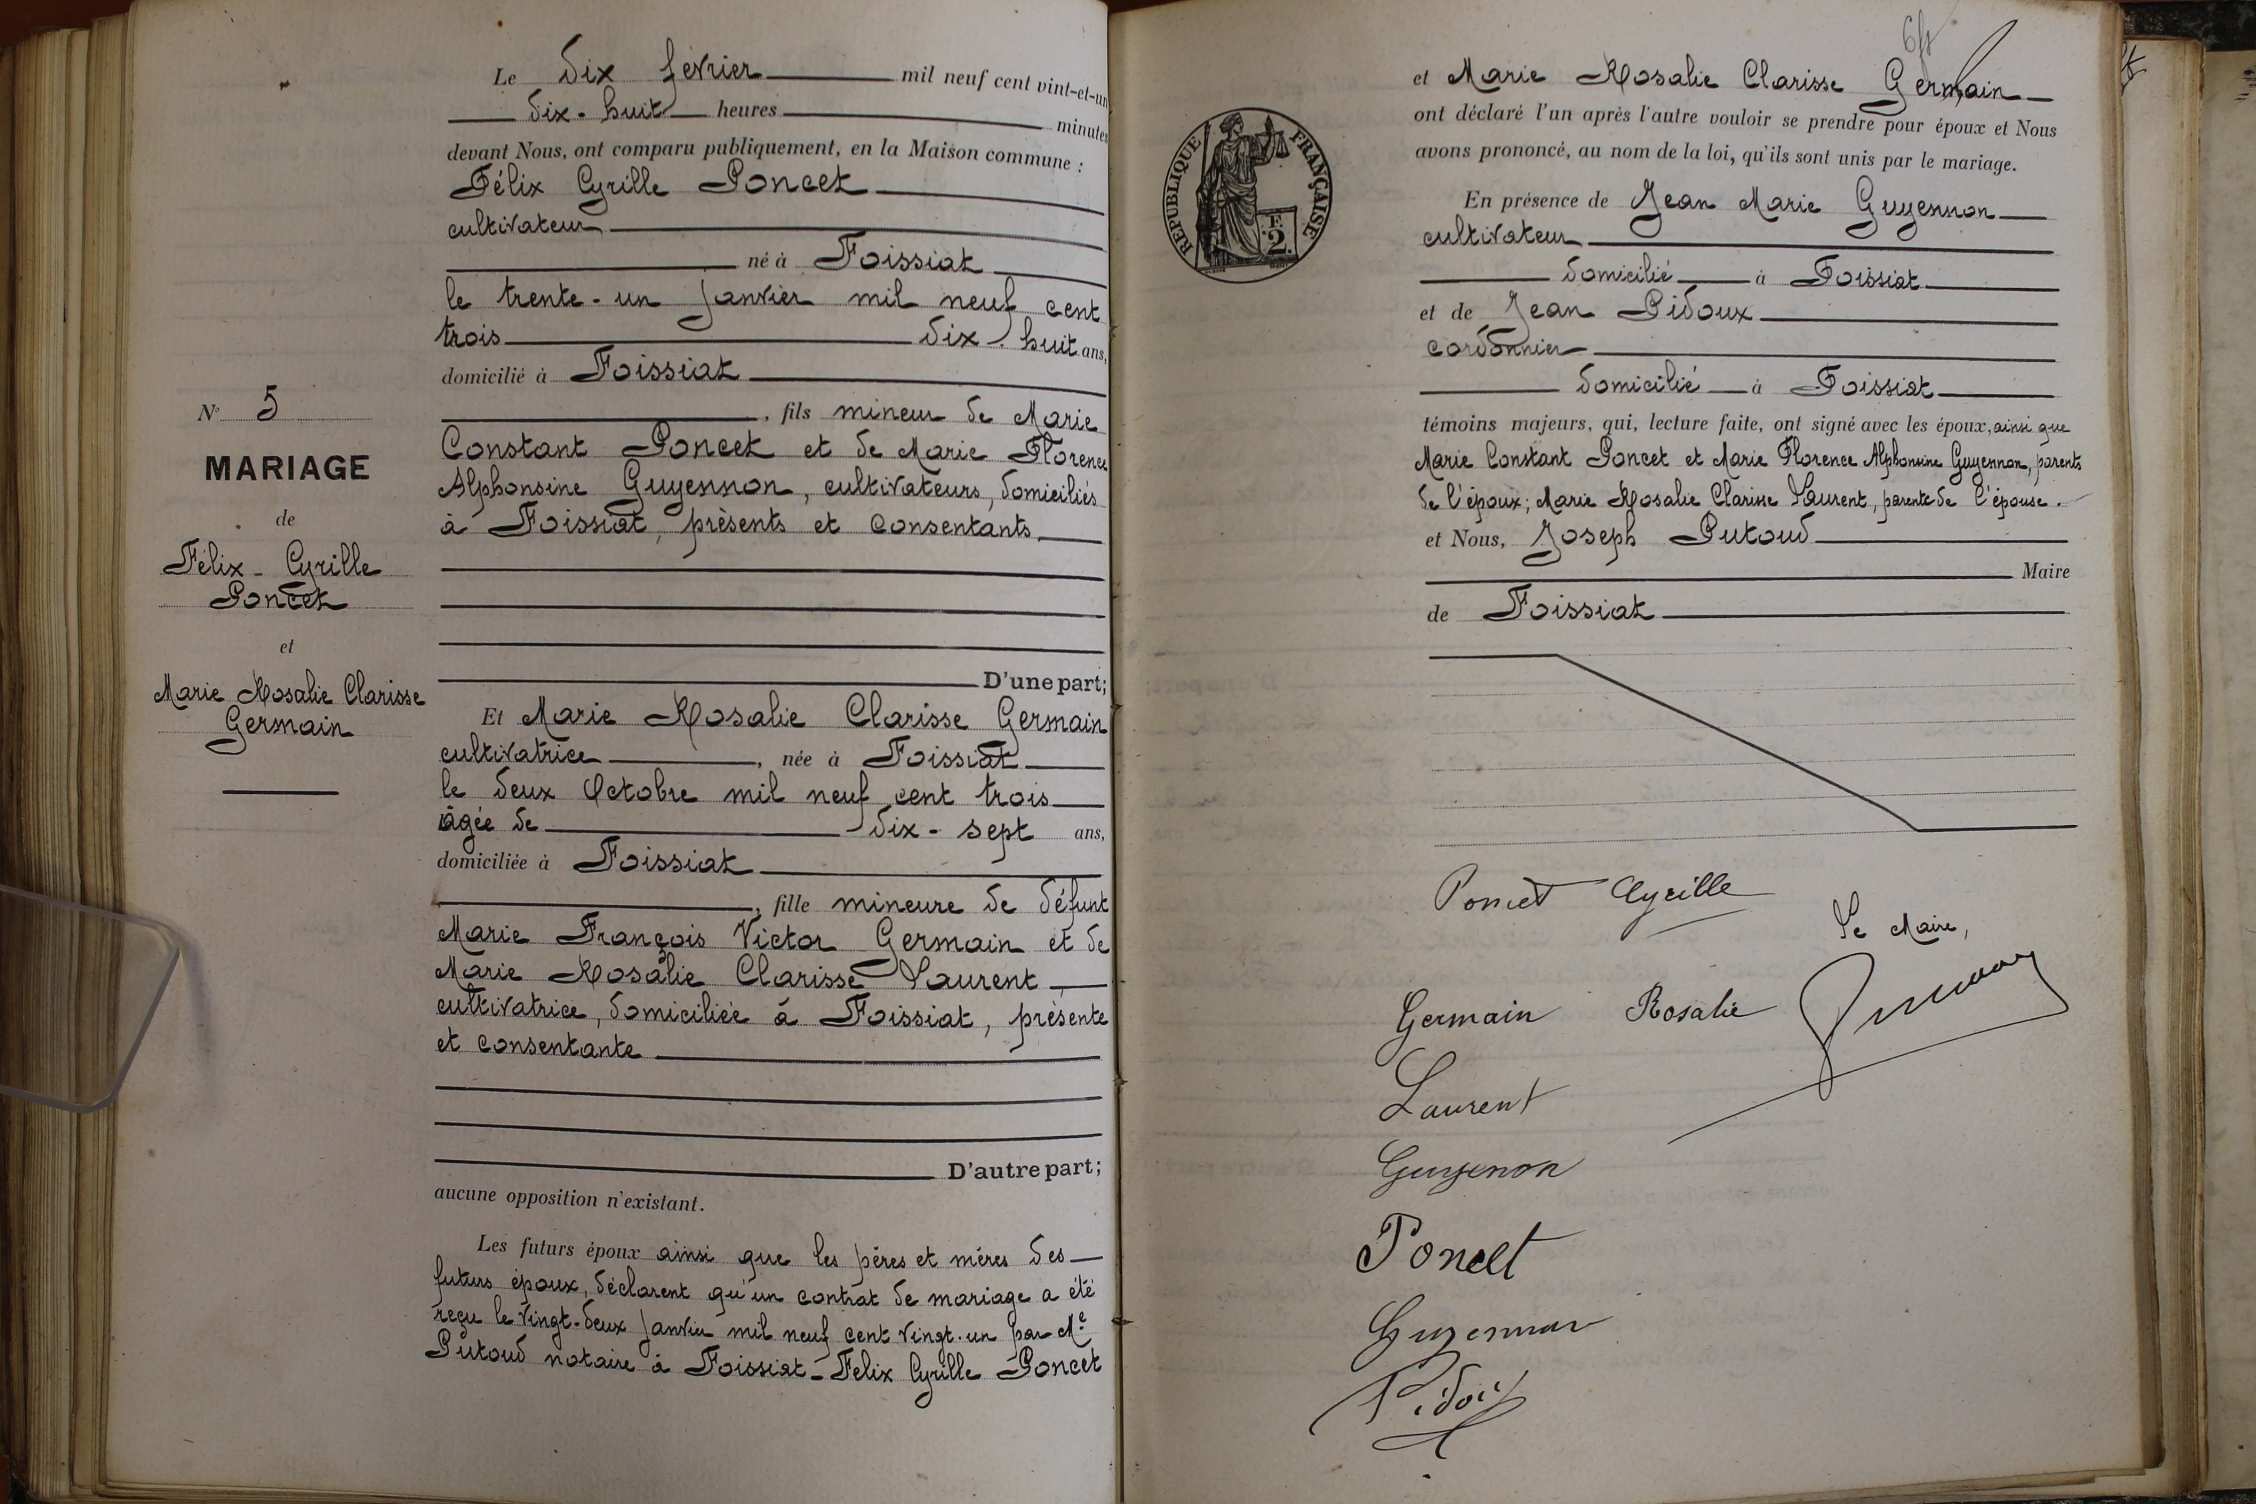 N° 5
MARIAGE
de
Félix - Cyrille
Poncet
et
Marie Rosalie Clarisse
Germain
Le dix février mil neuf cent vint-et-un
dix-huit heures minutes
devant Nous, ont comparu publiquement, en la Maison commune :
Félix Cyrille Poncet
cultivateur
né à Foissiat
le trente-un janvier mil neuf cent
trois dix-huit ans,
domicilié à Foissiat
, fils mineur de Marie
Constant Poncet et de Marie Florence
Alphonsine Guyennon, cultivateurs, domiciliés
à Foissiat, présents et consentants
D'une part;
Et Marie Rosalie Clarisse Germain
cultivatrice, née à Foissiat
le deux Octobre mil neuf cent trois
âgée de dix-sept ans,
domiciliée à Foissiat
, fille mineure de défunt
Marie François Victor Germain et de
Marie Rosalie Clarisse Laurent,
cultivatrice, domiciliée à Foissiat, présente
et consentante
D'autre part;
aucune opposition n'existant.
Les futurs époux ainsi que les pères et mères des
futurs époux, déclarent qu'un contrat de mariage a été
reçu le vingt-deux janvier mil neuf cent vingt-un par Me
Putoud notaire à Foissiat - Felix Cyrille Poncet
et Marie Rosalie Clarisse Germain
ont déclaré l'un après l'autre vouloir se prendre pour époux et Nous
avons prononcé, au nom de la loi, qu'ils sont unis par le mariage.
RÉPUBLIQUE FRANÇAISE
2 F.
En présence de Jean Marie Guyennon
cultivateur
domicilié à Foissiat
et de Jean Pidoux
cordonnier
domicilié à Foissiat
témoins majeurs, qui, lecture faite, ont signé avec les époux, ainsi que
Marie Constant Poncet et Marie Florence Alphonsine Guyennon, parents
de l'époux; Marie Rosalie Clarisse Laurent, parente de l'épouse.
et Nous, Joseph Putoud
Maire
de Foissiat
Poncet Cyrille
Le Maire,
Germain Rosalie
Laurent
Guyenon
Poncet
Guyennon
Pidoux